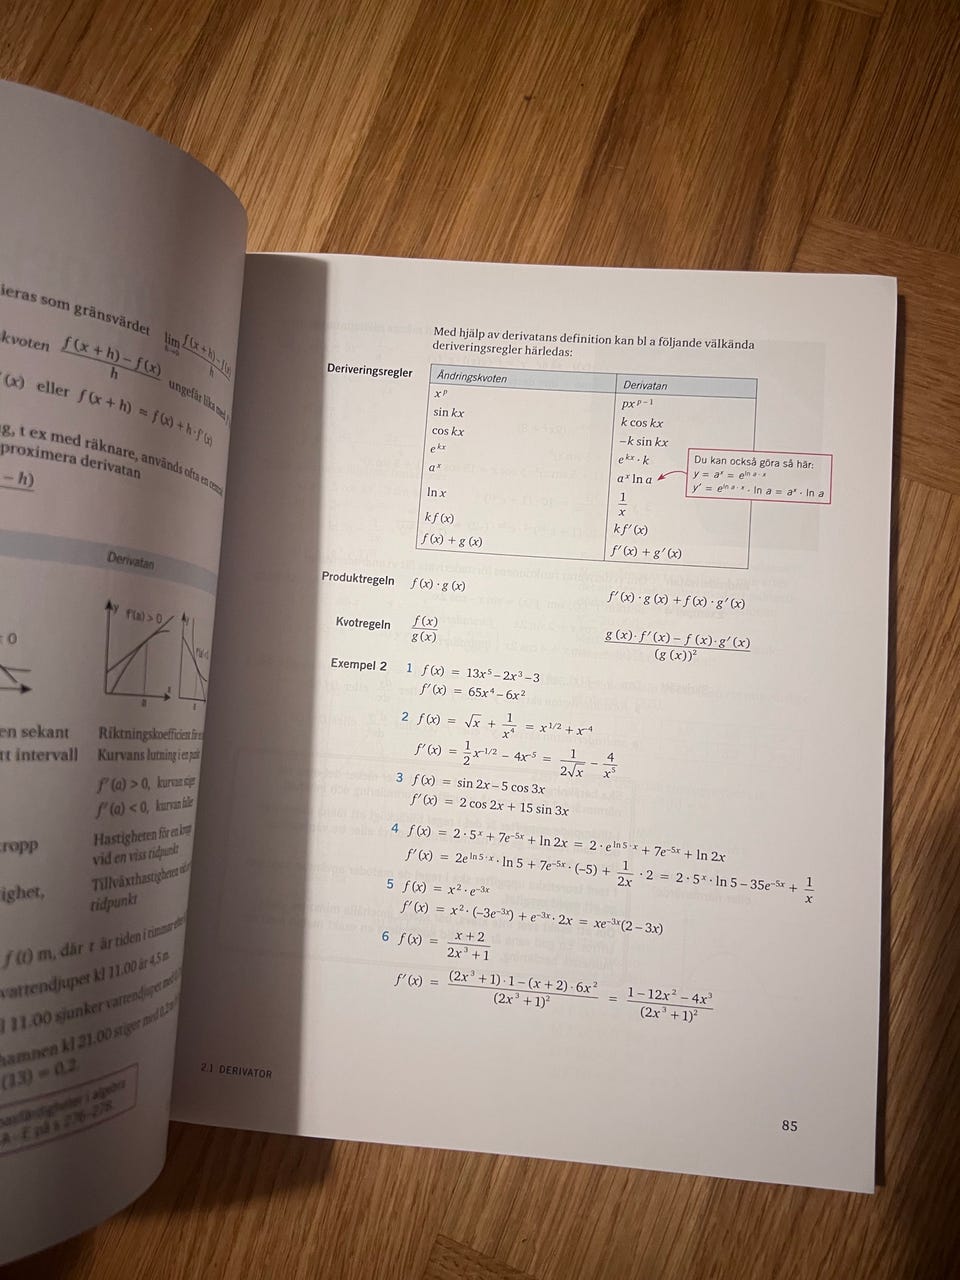 ieras som gränsvärdet lim h→0 f(x+h)–f(x) / h
kvoten f(x+h)–f(x) / h ungefär lika med
(x) eller f(x+h) = f(x)+h·f'(x)
g, t ex med räknare, används ofta en central
proximera derivatan
– h)
Derivatan
y f'(a) > 0 y
: 0
a x
en sekant Riktningskoefficient för en
tt intervall Kurvans lutning i en punkt
f'(a) > 0, kurvan stiger
f'(a) < 0, kurvan faller
kropp Hastigheten för en kropp
vid en viss tidpunkt
ighet, Tillväxthastigheten vid en
tidpunkt
f(t) m, där t är tiden i timmar efter
vattendjupet kl 11.00 är 4,5 m.
l 11.00 sjunker vattendjupet med
hamnen kl 21.00 stiger med 0,2
(13) = 0,2.
basfärdigheter i algebra
A–E på s 276–278.
Med hjälp av derivatans definition kan bl a följande välkända
deriveringsregler härledas:
Deriveringsregler
Ändringskvoten Derivatan
xᵖ pxᵖ⁻¹
sin kx k cos kx
cos kx –k sin kx
eᵏˣ eᵏˣ · k
aˣ aˣ ln a
ln x 1/x
k f(x) k f'(x)
f(x) + g(x) f'(x) + g'(x)
Du kan också göra så här:
y = aˣ = e^(ln a · x)
y' = e^(ln a · x) · ln a = aˣ · ln a
Produktregeln f(x) · g(x) f'(x) · g(x) + f(x) · g'(x)
Kvotregeln f(x)/g(x) (g(x) · f'(x) – f(x) · g'(x))/(g(x))²
Exempel 2 1 f(x) = 13x⁵ – 2x³ – 3
f'(x) = 65x⁴ – 6x²
2 f(x) = √x + 1/x⁴ = x^(1/2) + x⁻⁴
f'(x) = 1/2 x^(–1/2) – 4x⁻⁵ = 1/(2√x) – 4/x⁵
3 f(x) = sin 2x – 5 cos 3x
f'(x) = 2 cos 2x + 15 sin 3x
4 f(x) = 2 · 5ˣ + 7e⁻⁵ˣ + ln 2x = 2 · e^(ln 5 · x) + 7e⁻⁵ˣ + ln 2x
f'(x) = 2e^(ln 5 · x) · ln 5 + 7e⁻⁵ˣ · (–5) + 1/(2x) · 2 = 2 · 5ˣ · ln 5 – 35e⁻⁵ˣ + 1/x
5 f(x) = x² · e⁻³ˣ
f'(x) = x² · (–3e⁻³ˣ) + e⁻³ˣ · 2x = xe⁻³ˣ(2 – 3x)
6 f(x) = (x + 2)/(2x³ + 1)
f'(x) = ((2x³ + 1) · 1 – (x + 2) · 6x²)/(2x³ + 1)² = (1 – 12x² – 4x³)/(2x³ + 1)²
2.1 DERIVATOR
85